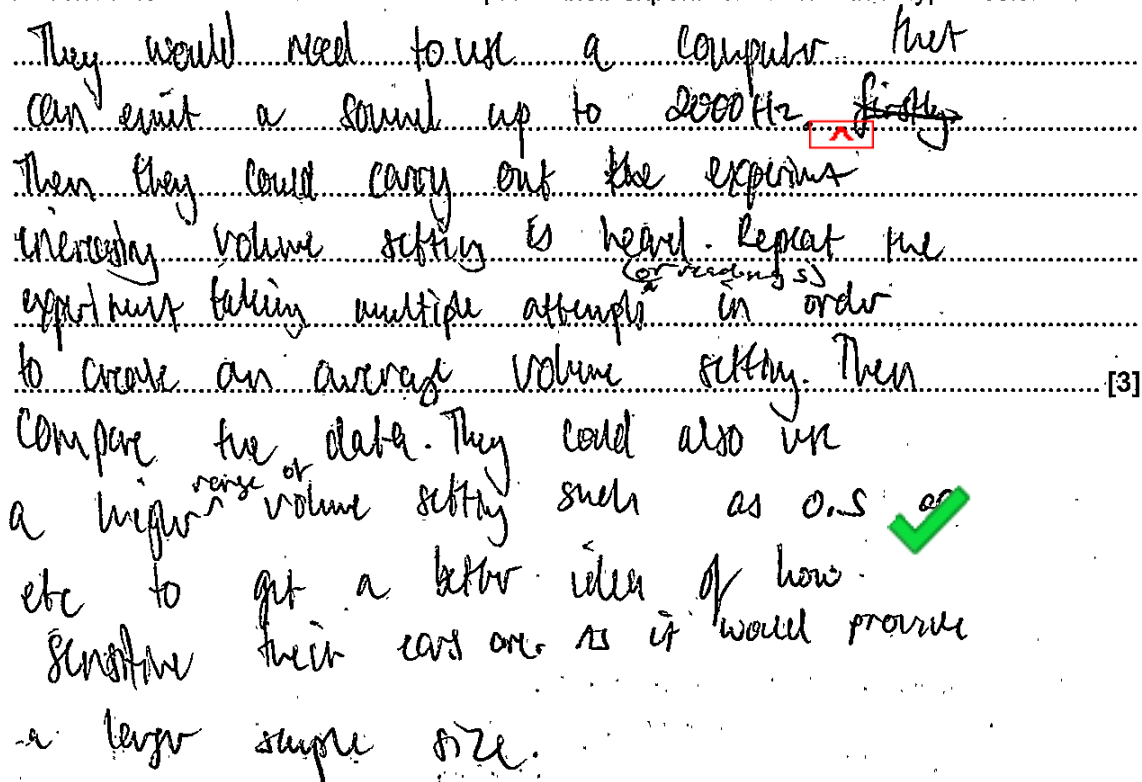 They would need to use a computer that
can emit a sound up to 2000 Hz. ~~firstly~~
Then they could carry out the experiment
increasing volume setting is heard. Repeat the
(or readings)
experiment taking multiple attempts in order
to create an average volume setting. Then
[3]
compare the data. They could also use
range of
a higher volume setting such as 0.5
etc to get a better idea of how
sensitive their ears are. As it would provide
a larger sample size.